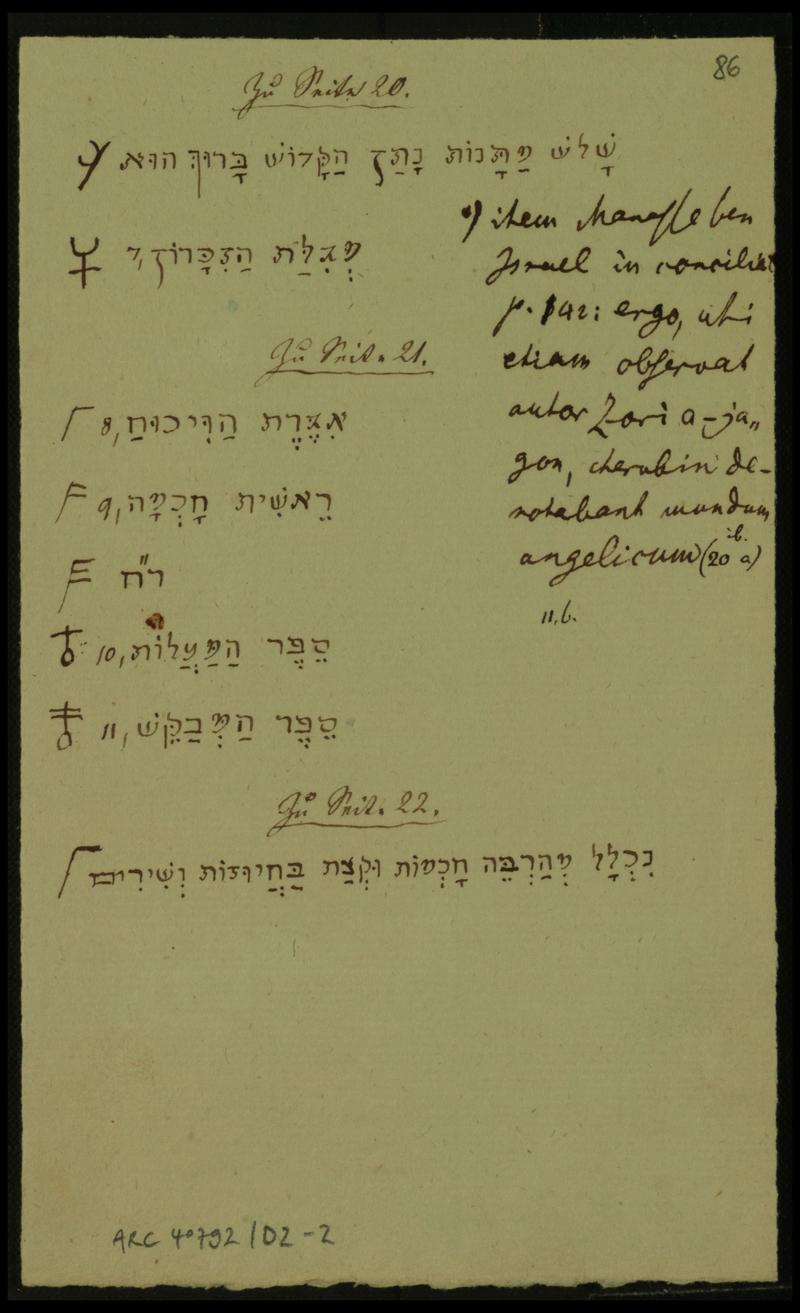 86
Zu Seite 20.
שָׁלֹשׁ מַתָּנוֹת נָתַן הַקָּדוֹשׁ בָּרוּךְ הוּא
מְגִלַּת הַזִּכָּרוֹן 7,
*) item Manasse ben
Israel in conciliat
p. 142: ergo, uti
etiam observat
autor Zori a-ja„
gon, cherubin de-
notabant mundum
angelicum (20 a)
ib.
11,b.
Zu Seite 21.
אִגֶּרֶת הַוִּיכּוּחַ 8,
רֵאשִׁית חָכְמָה 9,
ר"ח
סֵפֶר הַמַּעֲלוֹת 10,
סֵפֶר הַמְבַקֵּשׁ 11,
Zu Seite 22.
נִכְלָל מְהַרְבֵּה חָכְמוֹת וּקְצַת בַּחֲיוּדוֹת וְשִׁירִים
ARC 4°792/D2-2